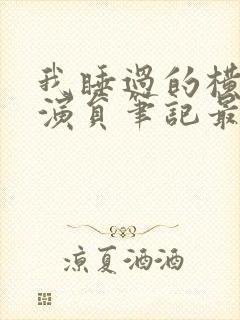 我睡過的橫
演員筆記最
涼夏酒酒